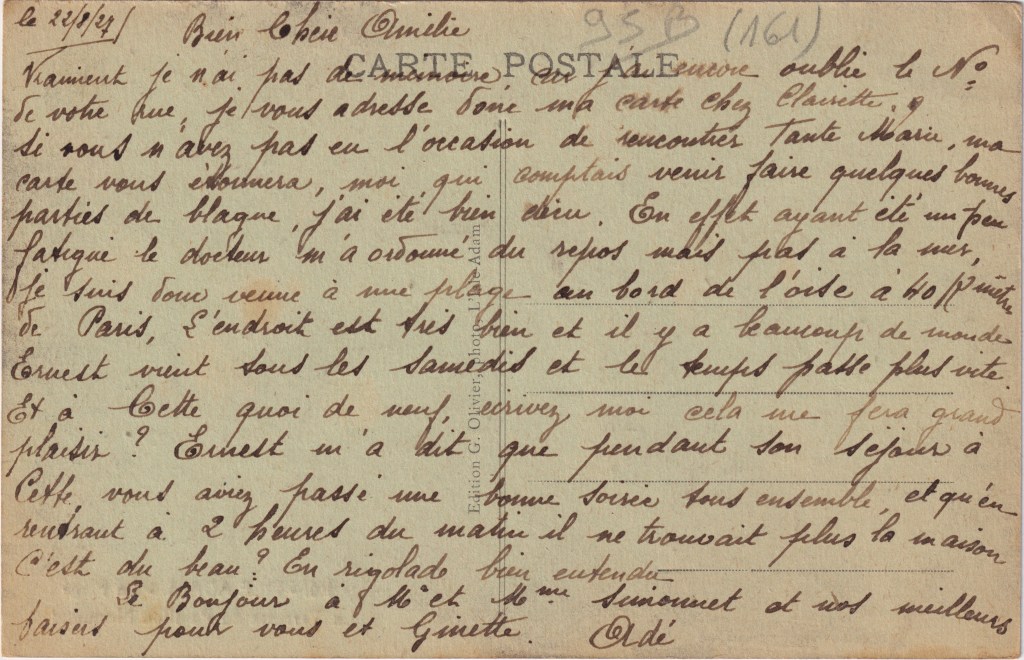 le 22/8/27
Bien Chère Amélie
95 B (161)
CARTE POSTALE
Vraiment je n'ai pas de mémoire, car j'ai encore oublié le No
de votre rue, je vous adresse donc ma carte chez Clairette.
si vous n'avez pas eu l'occasion de rencontrer Tante Marie, ma
carte vous étonnera, moi qui comptais venir faire quelques bonnes
parties de blague, j'ai été bien déçu. En effet ayant été un peu
fatigué le docteur m'a ordonné du repos mais pas à la mer,
Je suis donc venue à une plage au bord de l'oise à 40 Kmètre
de Paris, L'endroit est très bien et il y a beaucoup de monde
Ernest vient tous les samedis et le temps passe plus vite.
Et à Cette quoi de neuf, écrivez moi cela me fera grand
plaisir ? Ernest m'a dit que pendant son séjour à
Cette, vous aviez passé une bonne soirée tous ensemble, et qu'en
rentrant à 2 heures du matin il ne trouvait plus la maison
C'est du beau ? En rigolade bien entendu
Le Bonjour à Mr et Mme Simonnet et nos meilleurs
baisers pour vous et Ginette. Adé
Edition G. Olivier, photo, L'Isle Adam